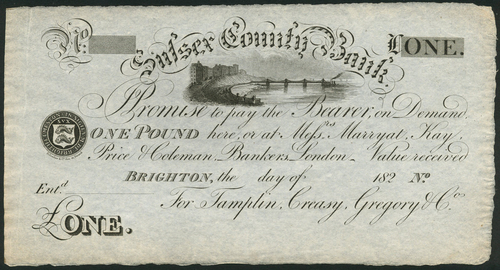 No. £ONE.
Sussex County Bank.
I Promise to pay the Bearer, on Demand,
ONE POUND here, or at Messrs. Marryat, Kay,
Price & Coleman, Bankers, London. Value received
BRIGHTON, the day of 182 No
Entd.
For Tamplin, Creasy, Gregory & Co.
£ONE.